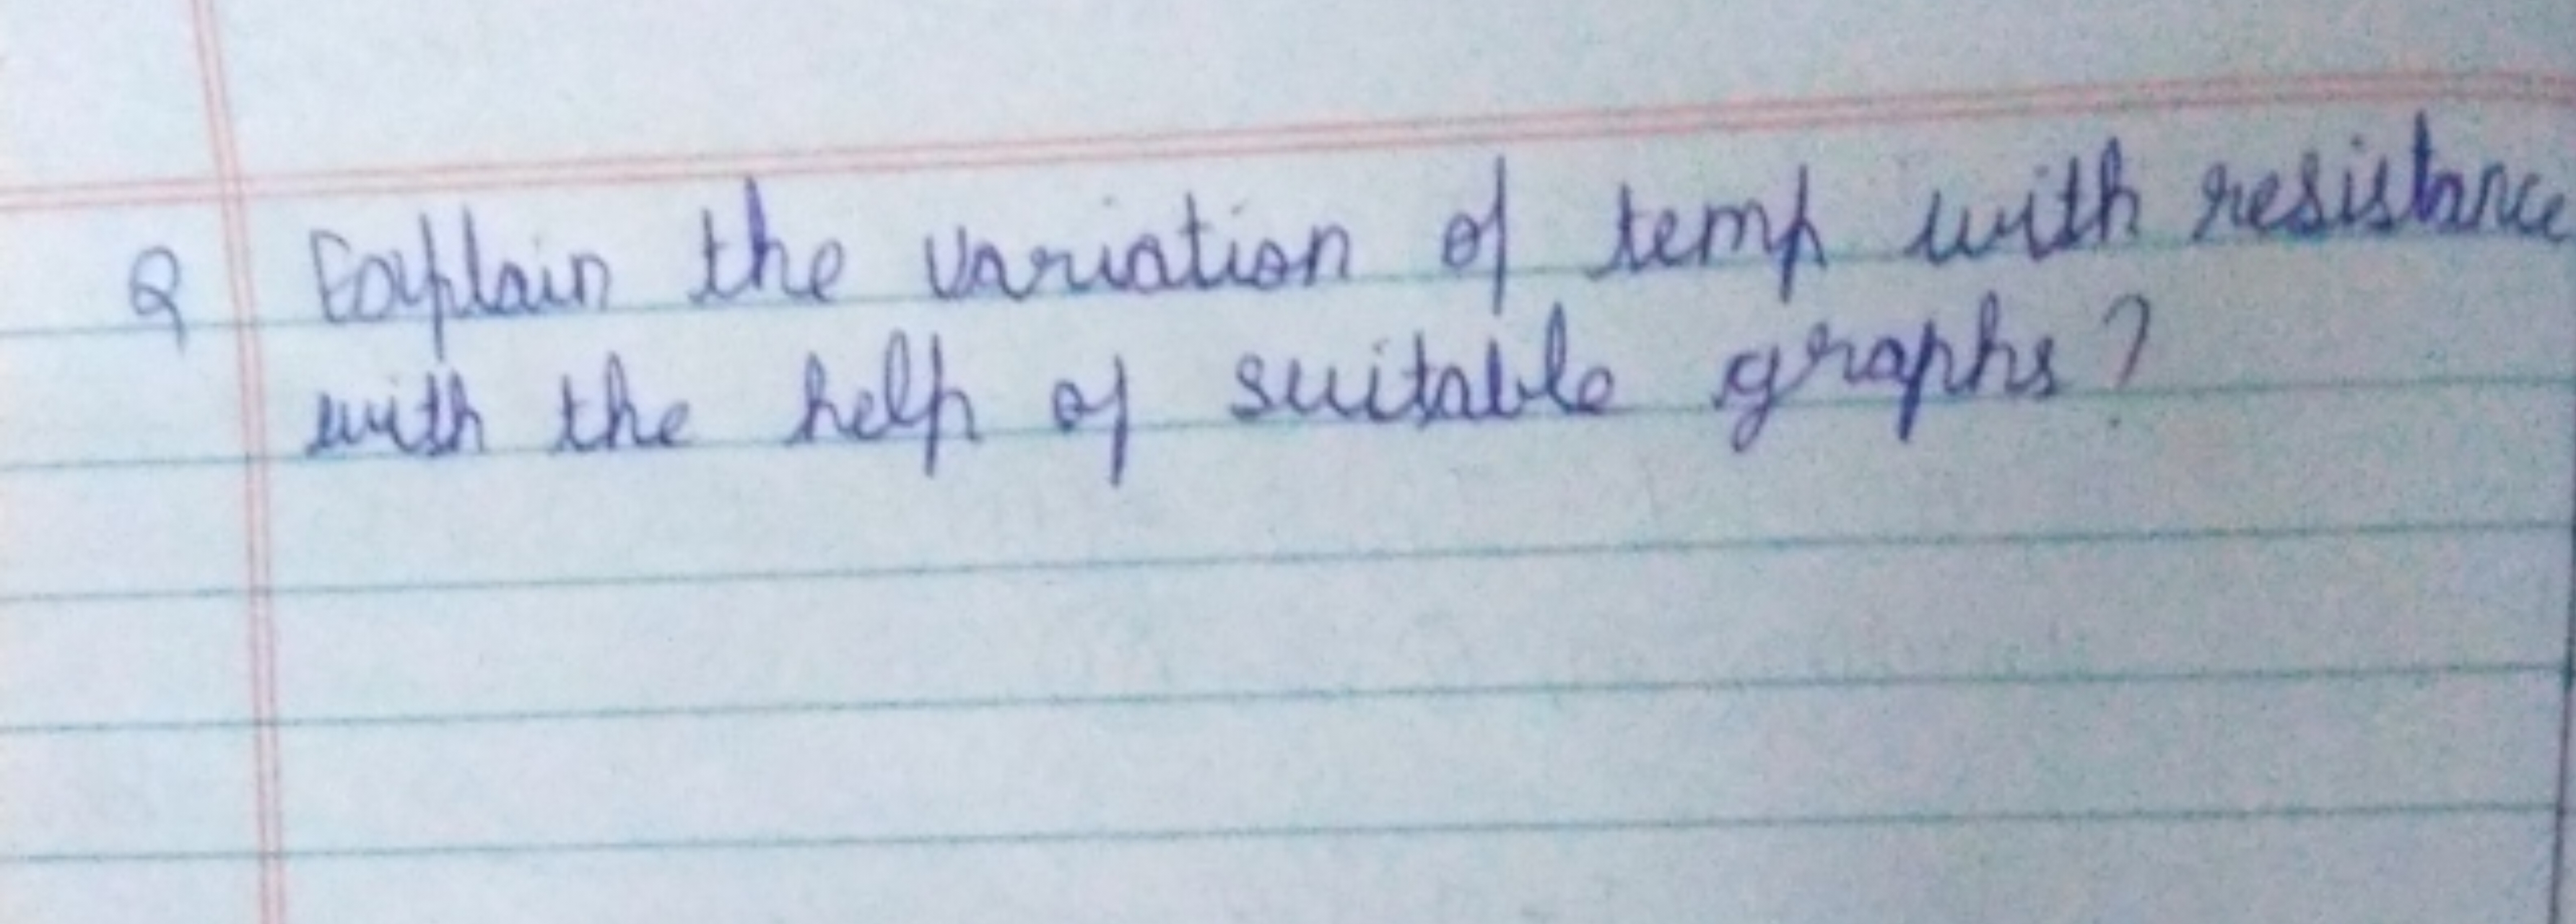 Q Explain the variation of temp with resistance
with the help of suitable graphs?